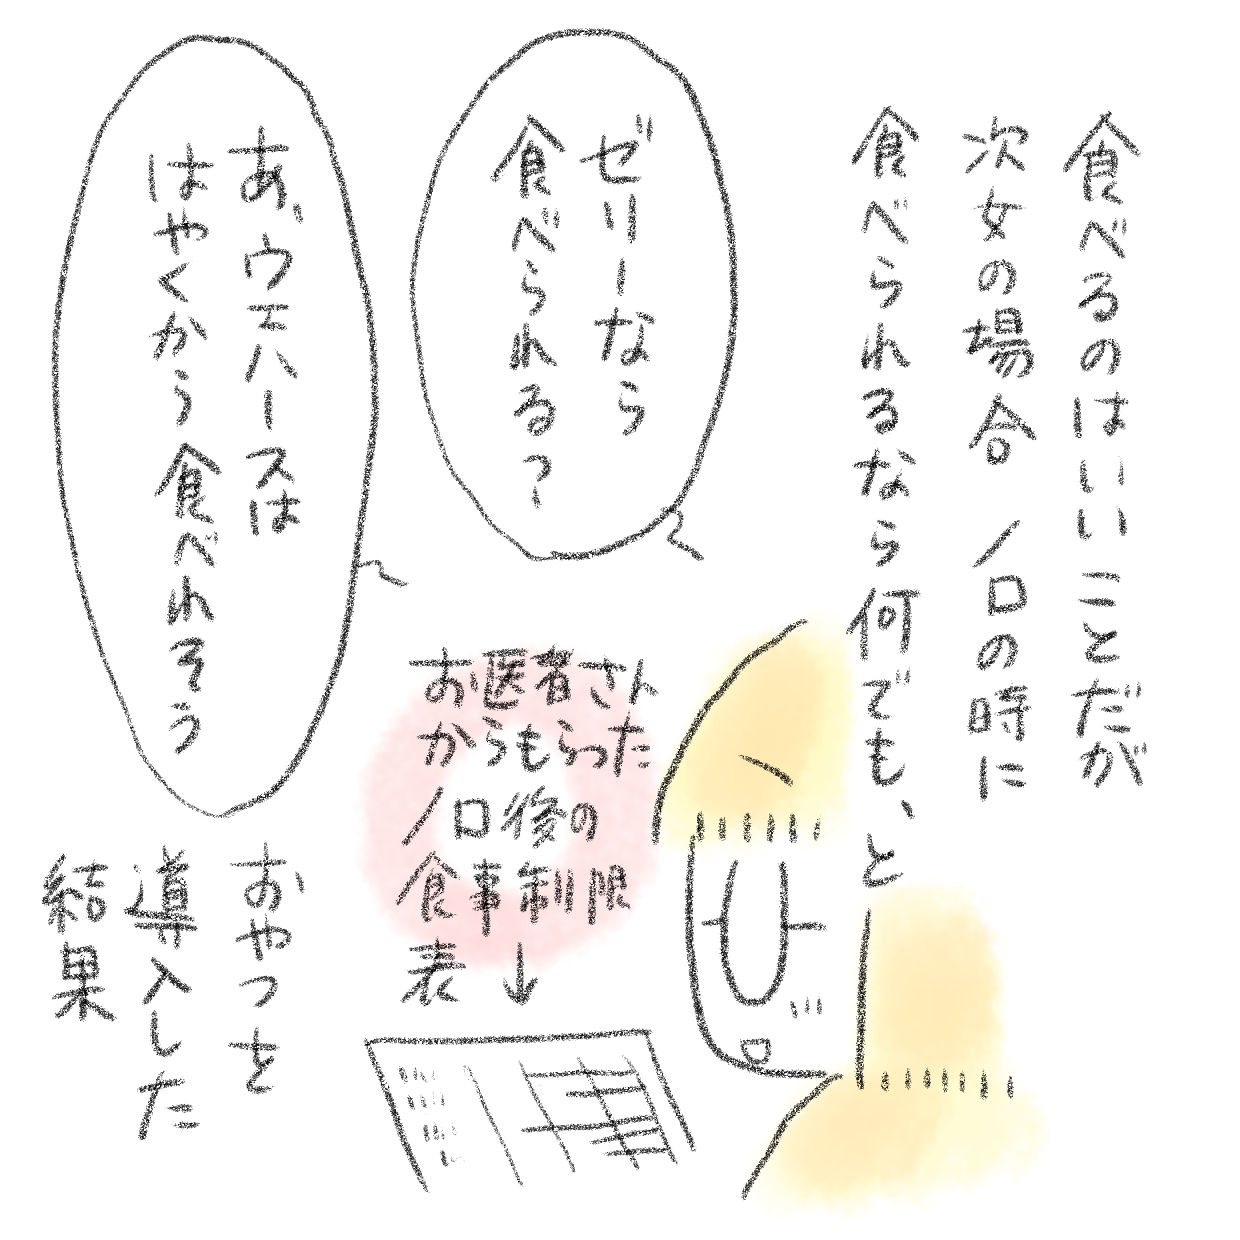 食べるのはいいことだが
次女の場合 ノロの時に
食べられるなら何でも、と
ゼリーなら
食べられる?
あ、ウエハースは
はやくから食べれそう
お医者さん
からもらった
ノロ後の
食事制限
表↓
おやつを
導入した
結果